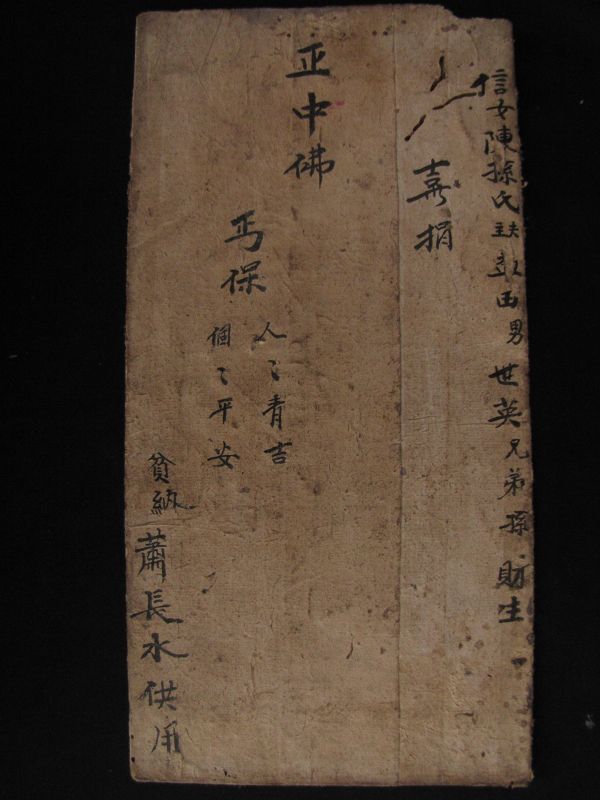 信女陳孫氏 夫彭西男世英兄弟孫財生
喜捐
正中佛
丐保
人〻青吉
個〻平安
貧納蕭長水供用